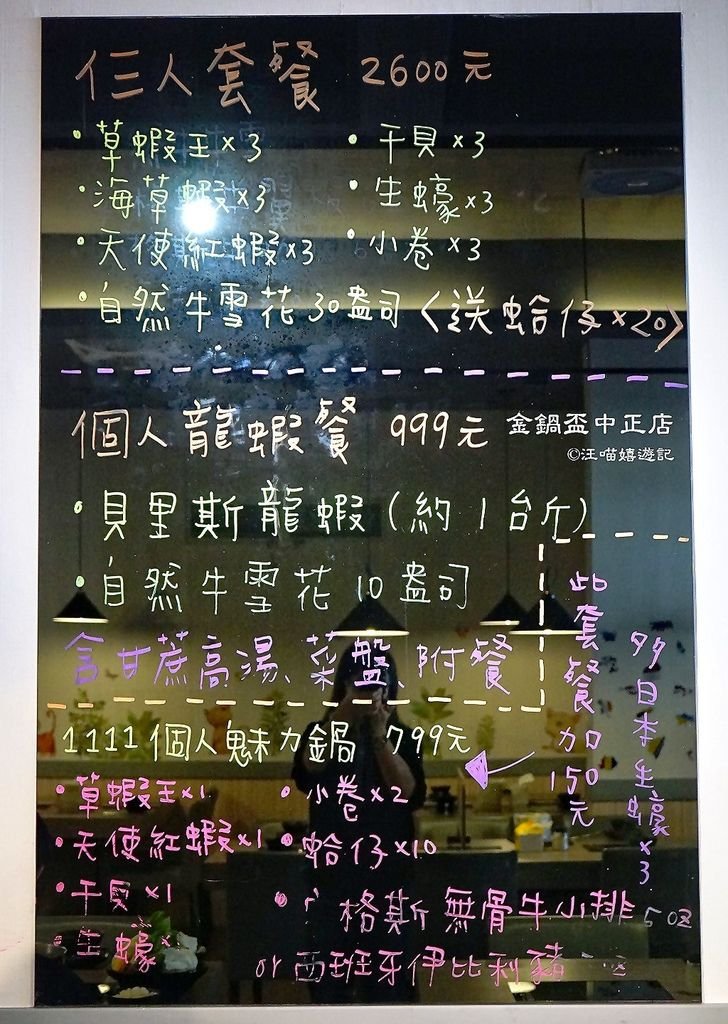 仨人套餐 2600元
·草蝦王×3 ·干貝×3
·海草蝦×3 ·生蠔×3
·天使紅蝦×3 ·小卷×3
·自然牛雪花30盎司〈送蛤仔×20〉
個人龍蝦餐 999元
金鍋盃中正店
©汪喵嬉遊記
·貝里斯龍蝦(約1台斤)
·自然牛雪花10盎司
含甘蔗高湯、菜盤、附餐
1111個人魅力鍋 799元
·草蝦王×1 ·小卷×2
·天使紅蝦×1 ·蛤仔×10
·干貝×1
·格斯無骨牛小排 5oz
·生蠔×
or西班牙伊比利豬
此套餐加150元
多日本生蠔×3